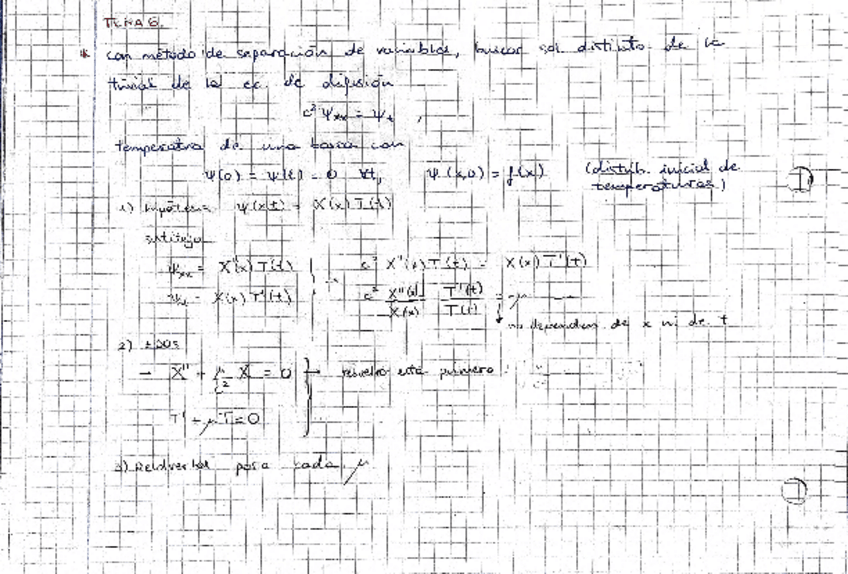 TEMA 6
* con método de separación de variables, buscar sol distinto de la
trivial de la ec. de difusión
c² Ψxx = Ψt ,
temperatura de una barra con
Ψ(0) = Ψ(t) = 0 ∀t, Ψ(x,0) = f(x) (distrib. inicial de
temperaturas)
1) hipótesis Ψ(x,t) = X(x) T(t)
sustituyo
Ψxx = X''(x) T(t) } → c² X''(x) T(t) = X(x) T'(t)
Ψt = X(x) T'(t) c² X''(x)/X(x) = T'(t)/T(t) = -μ
no dependen de x ni de t
2) EDOS
- X'' + μ/c² X = 0 } → resuelvo esta primero
T' + μT = 0
3) Resolverlas para cada μ